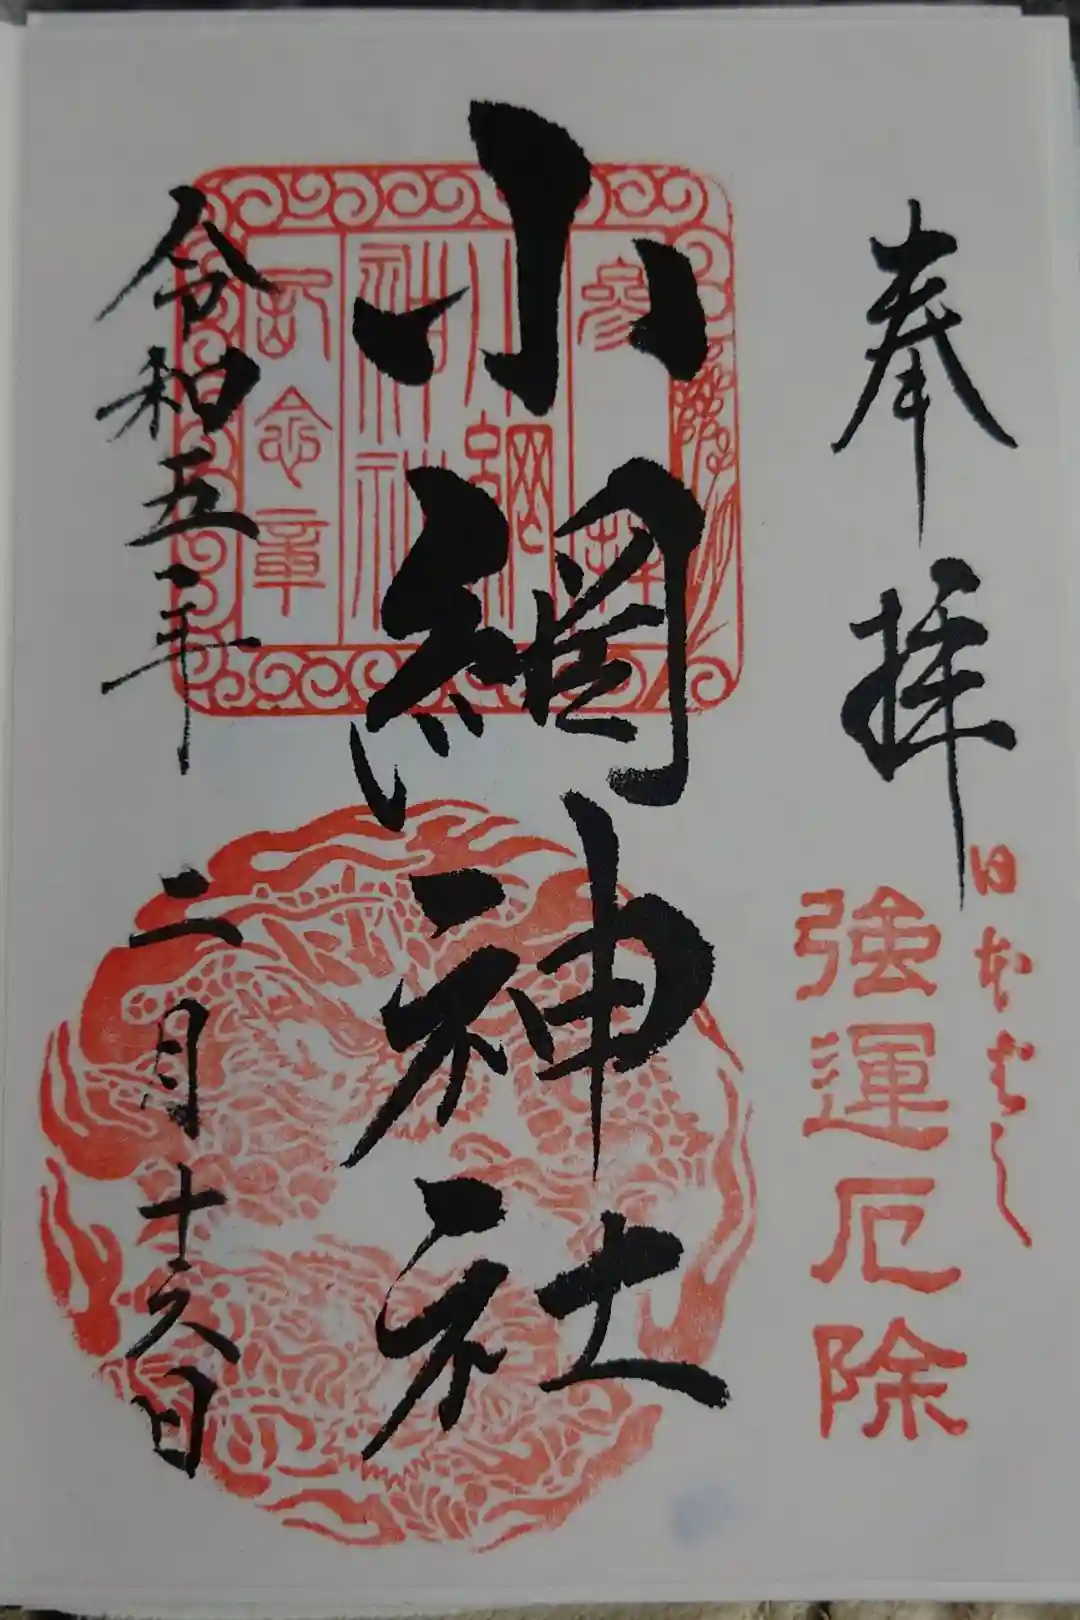 奉拝
日本ばし
強運厄除
小網神社
参拝
小網
神社
記念章
令和五年
二月十六日